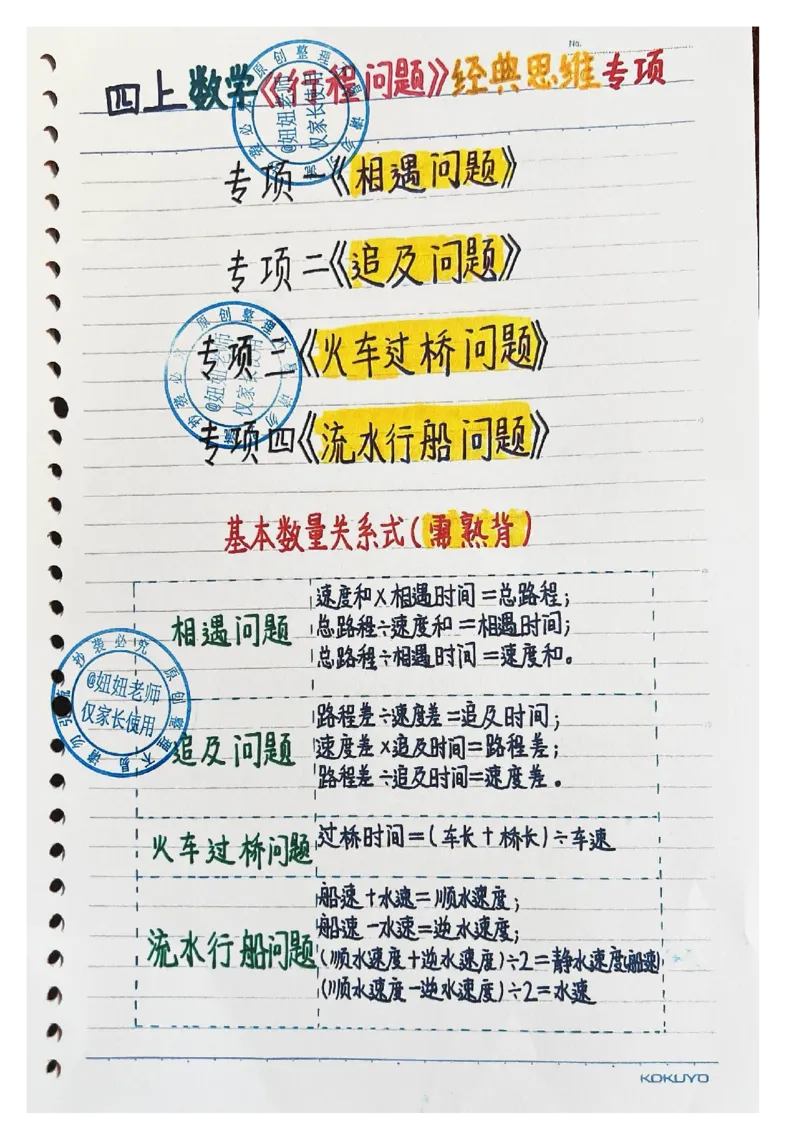 No.
四上数学《行程问题》经典思维专项
专项一《相遇问题》
专项二《追及问题》
专项三《火车过桥问题》
专项四《流水行船问题》
基本数量关系式(需熟背)
相遇问题
速度和×相遇时间=总路程;
总路程÷速度和=相遇时间;
总路程÷相遇时间=速度和。
追及问题
路程差÷速度差=追及时间;
速度差×追及时间=路程差;
路程差÷追及时间=速度差。
火车过桥问题
过桥时间=(车长+桥长)÷车速
流水行船问题
船速+水速=顺水速度;
船速-水速=逆水速度;
(顺水速度+逆水速度)÷2=静水速度(船速)
(顺水速度-逆水速度)÷2=水速
原创整理
@妞妞老师
仅家长使用
原创整理
@妞妞老师
仅家长使用
抄袭必究
原创整理不易
请勿
@妞妞老师
仅家长使用
KOKUYO